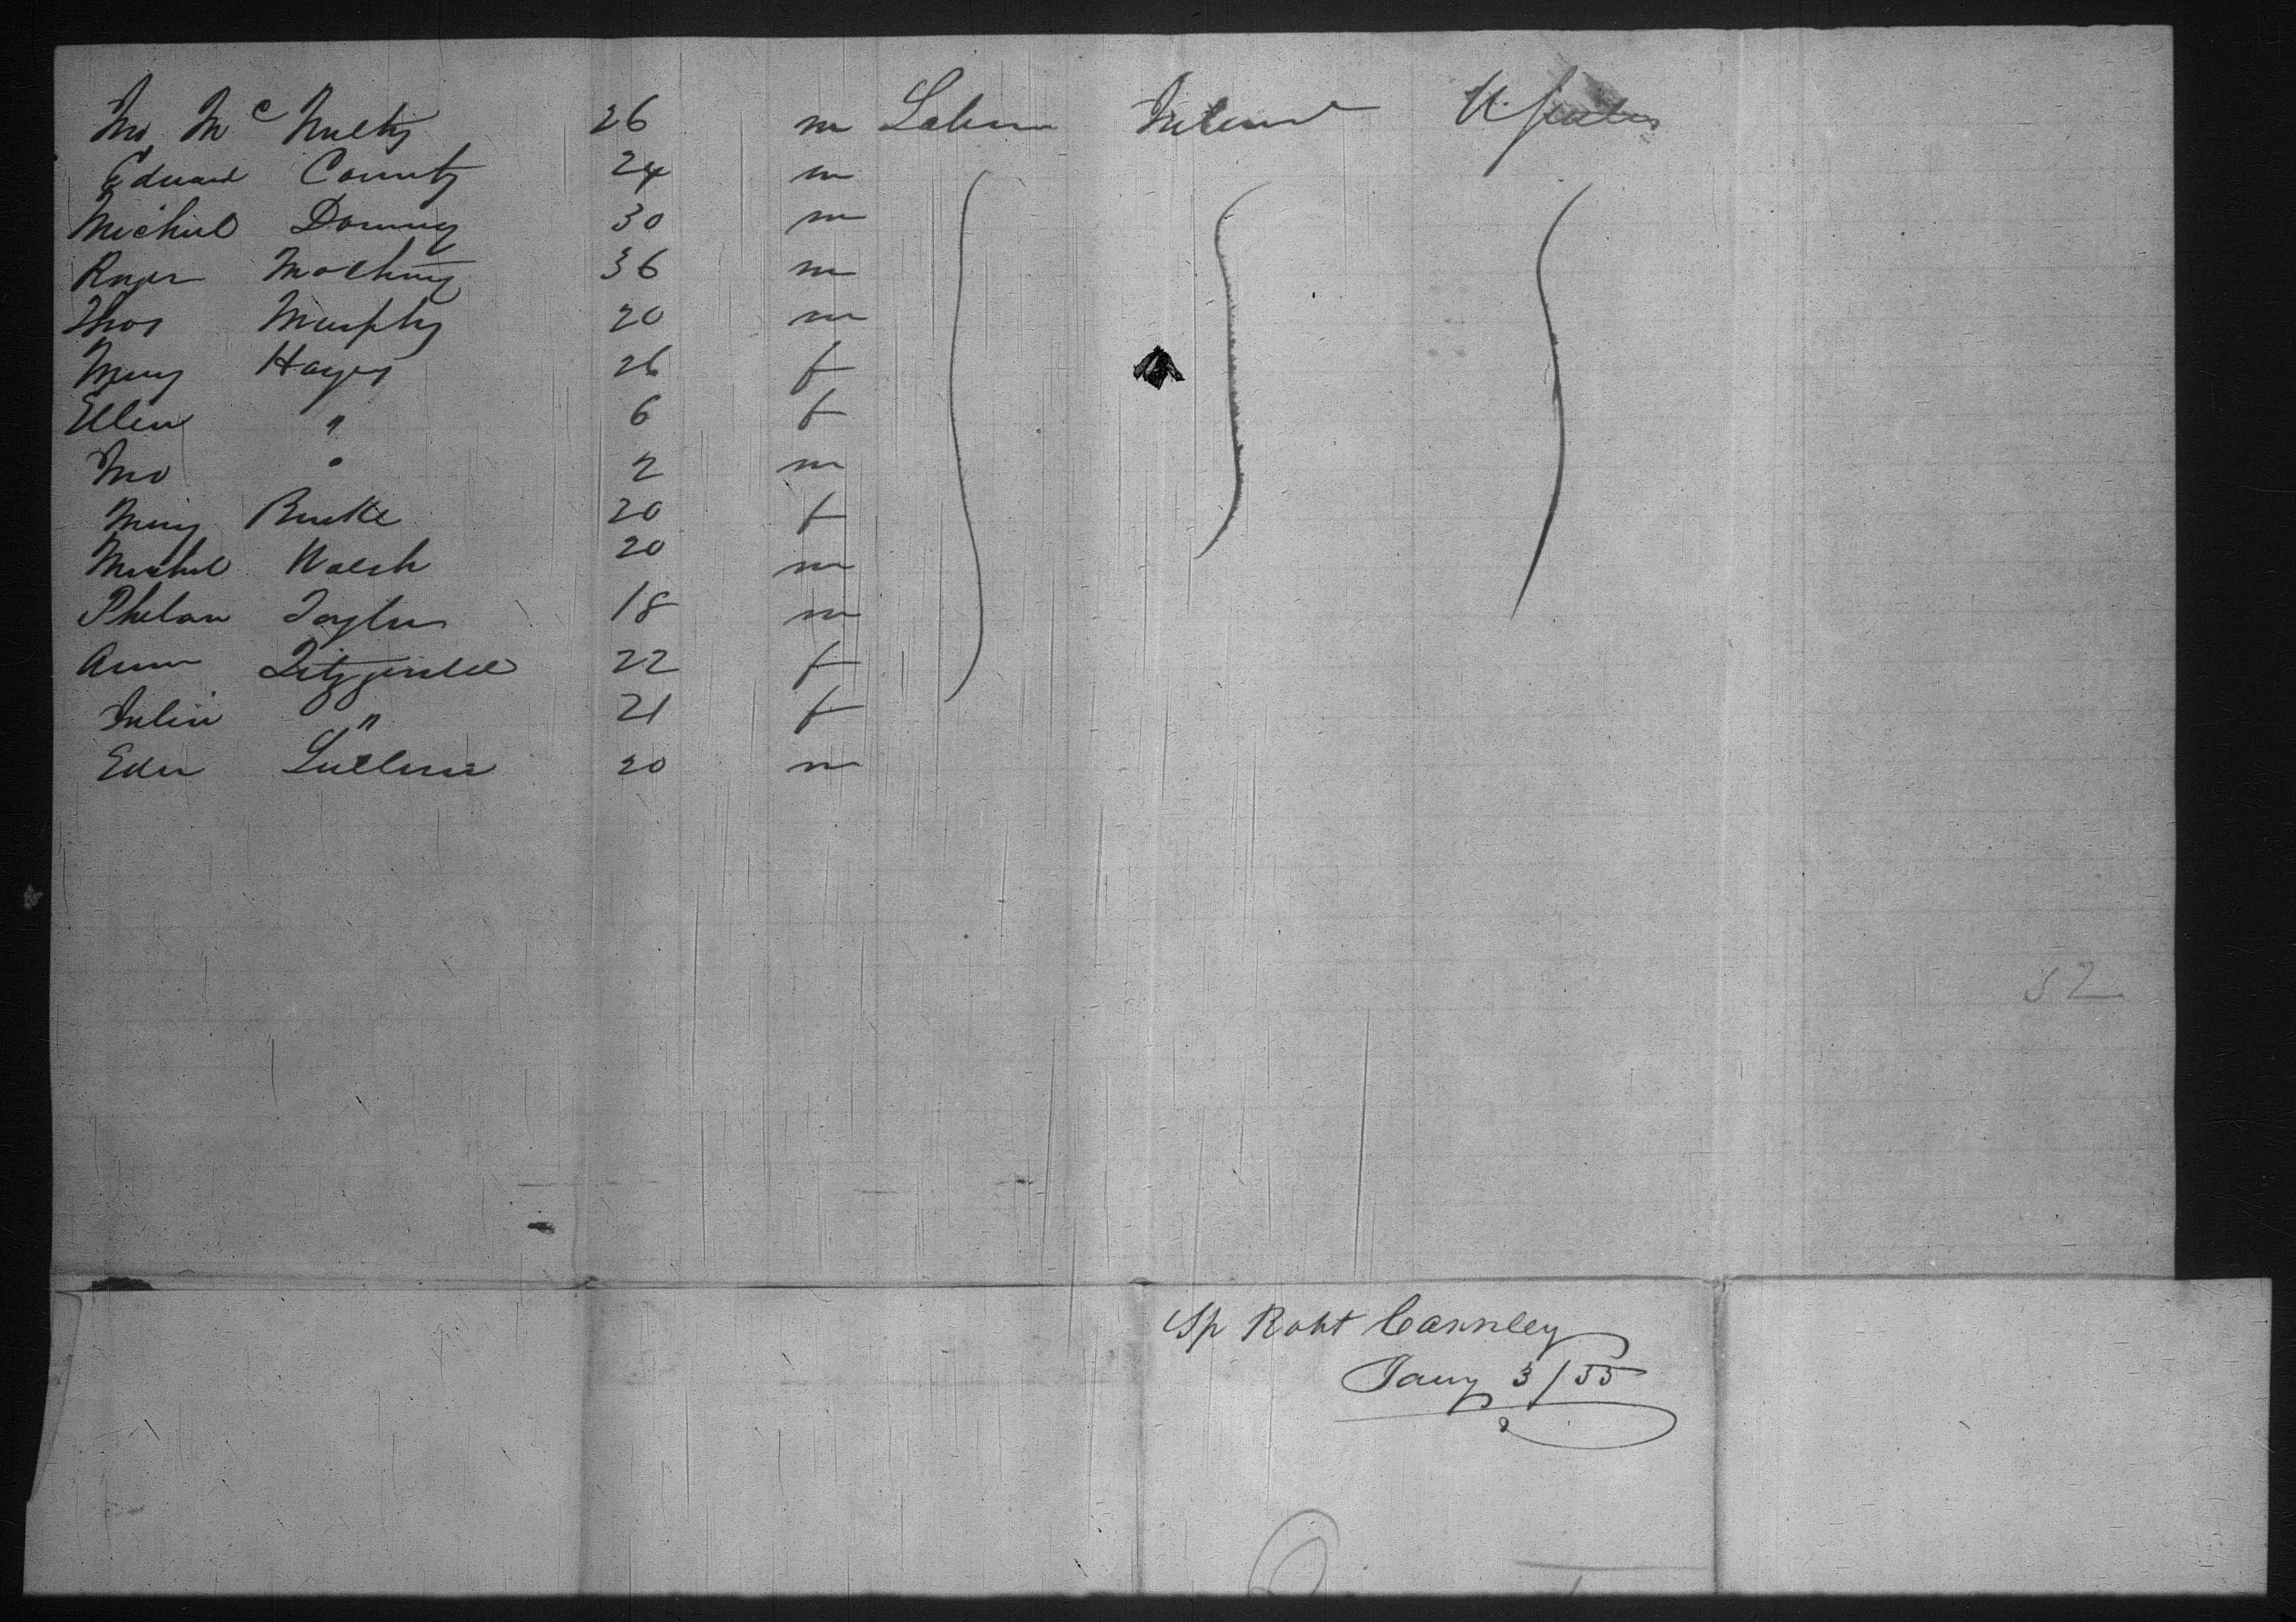 Jno McNulty 26 m Labour Ireland U States
Edward County 24 m
Michael Downey 30 m
Roger 36 m
Thos Murphy 20 m
Mary Hayes 26 f
Ellen " 6 f
Jno " 2 m
Mary Burke 20 f
Michael Walsh 20 m
Phelan Taylor 18 m
Ann Fitzgerald 22 f
Julia " 21 f
20 m
52
Sp Robt Carnley
Jany 3/55